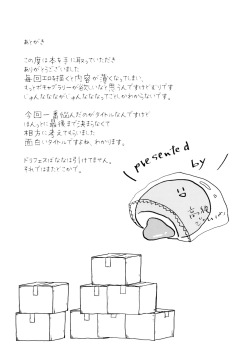 あとがき
この度は本を手に取っていただき
ありがとうございました
毎回エロを描くと内容が薄くなってしまい、
もっとボキャブラリーが欲しいなと思うんですけどムリです
じゅんなながじゅんなななってことしかわからないです。
今回一番悩んだのがタイトルなんですけど
ほんっとに最後まで決まらなくて
相方に考えてもらいました
面白いタイトルですよね、わかります。
ドリフェスばななは引けてません。
それではまたどこかで。
presented
by